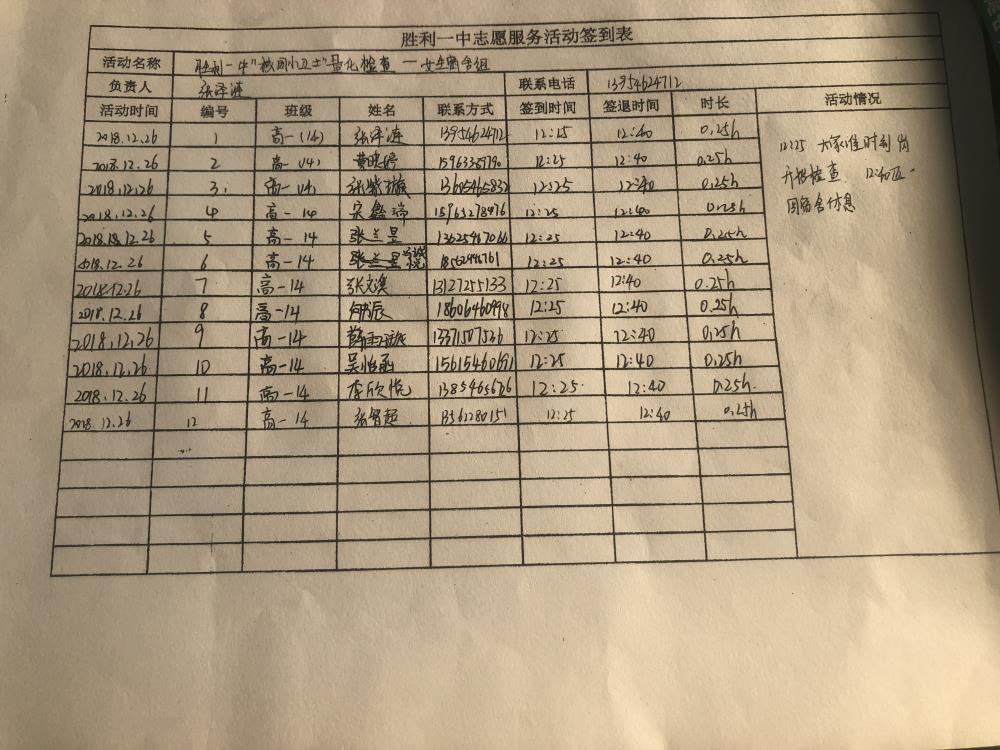 胜利一中志愿服务活动签到表
活动名称 胜利一中"校园小卫士"量化检查—女生宿舍组
负责人 张泽涟 联系电话 13954624712
活动时间 编号 班级 姓名 联系方式 签到时间 签退时间 时长 活动情况
2018.12.26 1 高一(14) 张泽涟 13954624712 12:25 12:40 0.25h
2018.12.26 2 高一(14) 黄晓婷 15963389790 12:25 12:40 0.25h
2018.12.26 3 高一(14) 张紫璇 13605465832 12:25 12:40 0.25h
2018.12.26 4 高一14 宋鑫瑞 15963278476 12:25 12:40 0.25h
2018.18.12.26 5 高一14 张兰昱 13625467066 12:25 12:40 0.25h
2018.12.26 6 高一14 12:25 12:40 0.25h
2018.12.26 7 高一14 13127255133 12:25 12:40 0.25h
2018.12.26 8 高一14 18606460998 12:25 12:40 0.25h
2018.12.26 9 高一14 13371507536 12:25 12:40 0.25h
2018.12.26 10 高一14 吴怡函 15615460691 12:25 12:40 0.25h
2018.12.26 11 高一14 李欣悦 12:25 12:40 0.25h
2018.12.26 12 高一14 张智超 13562280151 12:25 12:40 0.25h
12:25 大家准时到岗
开始检查 12:40
回宿舍休息